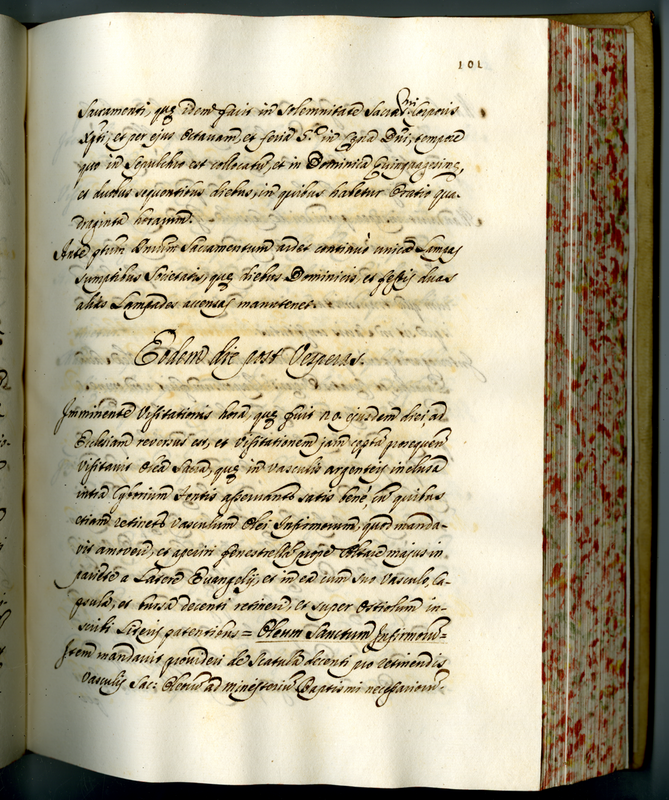 101
Sacramenti, quę idem facit in solemnitate Sacrmi Corporis
Xpti, et per ejus Octavam, et feria 5.a in Cęna Dni, tempore
quo in Sepulchro est collocatu, et in Dominica Quinquagesimę,
et duobus sequentibus diebus, in quibus habetur Oratio qua-
draginta horarum.
Ante Sacramentum ardet continuò unica Lampas
sumptibus Societatis, quę diebus Dominicis, et festis duas
alias Lampades accensas manutenet.
Eodem die post Vesperas.
Imminente Visitationis hora, quę fuit 20 ejusdem diei, ad
Ecclesiam reversus est, et Visitationem jam cęptã prosequen
Visitavit Olea Sacra, quę in vasculis argenteis inclusa
intra Cyborium Fontis asservantr satis bene, in quibus
etiam retinetr vasculum Olei Infirmorum, quod manda-
vit amoveri, et aperiri fenestrellã prope Altare majus in
pariete a Latere Evangelij, et in ea cum suo vasculo, ca-
psula, et bursa decenti retineri, et super Ostiolum in-
scribi Literis patentibus = Oleum Sanctum Infirmoru=
Item mandavit provideri de Scatula decenti pro retinendis
Vasculis Sac: Oleoru ad ministeriu Baptismi necessarioru.